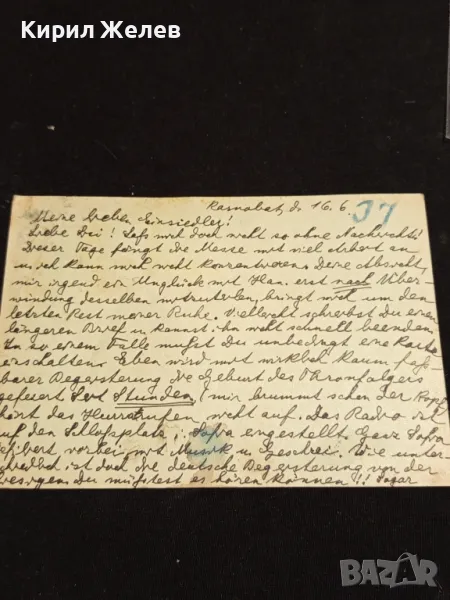 Кирил Желев
Karnobat, d. 16.6. 37
Meine lieben Einsiedler!
Liebe Lui! Laß mich doch nicht so ohne Nachricht!
Dieser Tage fängt die Messe mit viel Arbeit an
u. ich kann mich nicht konzentrieren. Deine Absicht,
mir irgend ein Unglück mit Han. erst nach Über-
windung desselben mitzuteilen, bringt mich um den
letzten Rest meiner Ruhe. Vielleicht schreibst Du einen
längeren Brief u. kannst ihn nicht schnell beenden.
In so einem Falle mußt Du unbedingt eine Karte
einschalten. Eben wird mit wirklich kaum faß-
barer Begeisterung die Geburt des Thronfolgers
gefeiert. Seit Stunden, mir brummt schon der Kopf
hört das Hurrarufen nicht auf. Das Radio ist
auf den Schloßplatz i. Sofia eingestellt. Ganz Sofia
vorbei mit Musik u. Geschrei. Wie unter-
schiedlich ist doch die deutsche Begeisterung von der
Du müßtest es hören können!! Sogar
BAZAR